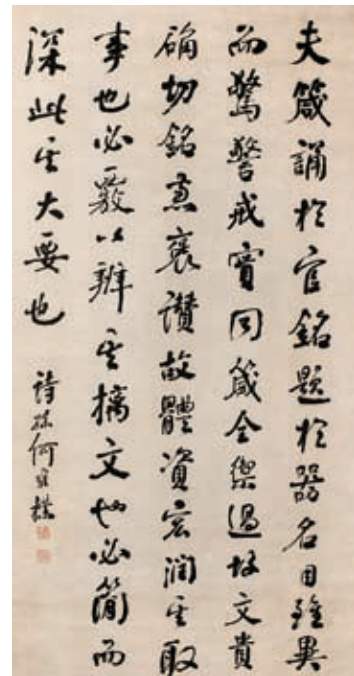 夫箴誦於官銘題於器名目雖異
而驚警戒實同箴全禦過故文貴
确切銘兼褒讚故體資宏潤其取
事也必覈以辨其摛文也必簡而
深此其大要也
詩孫何維樸